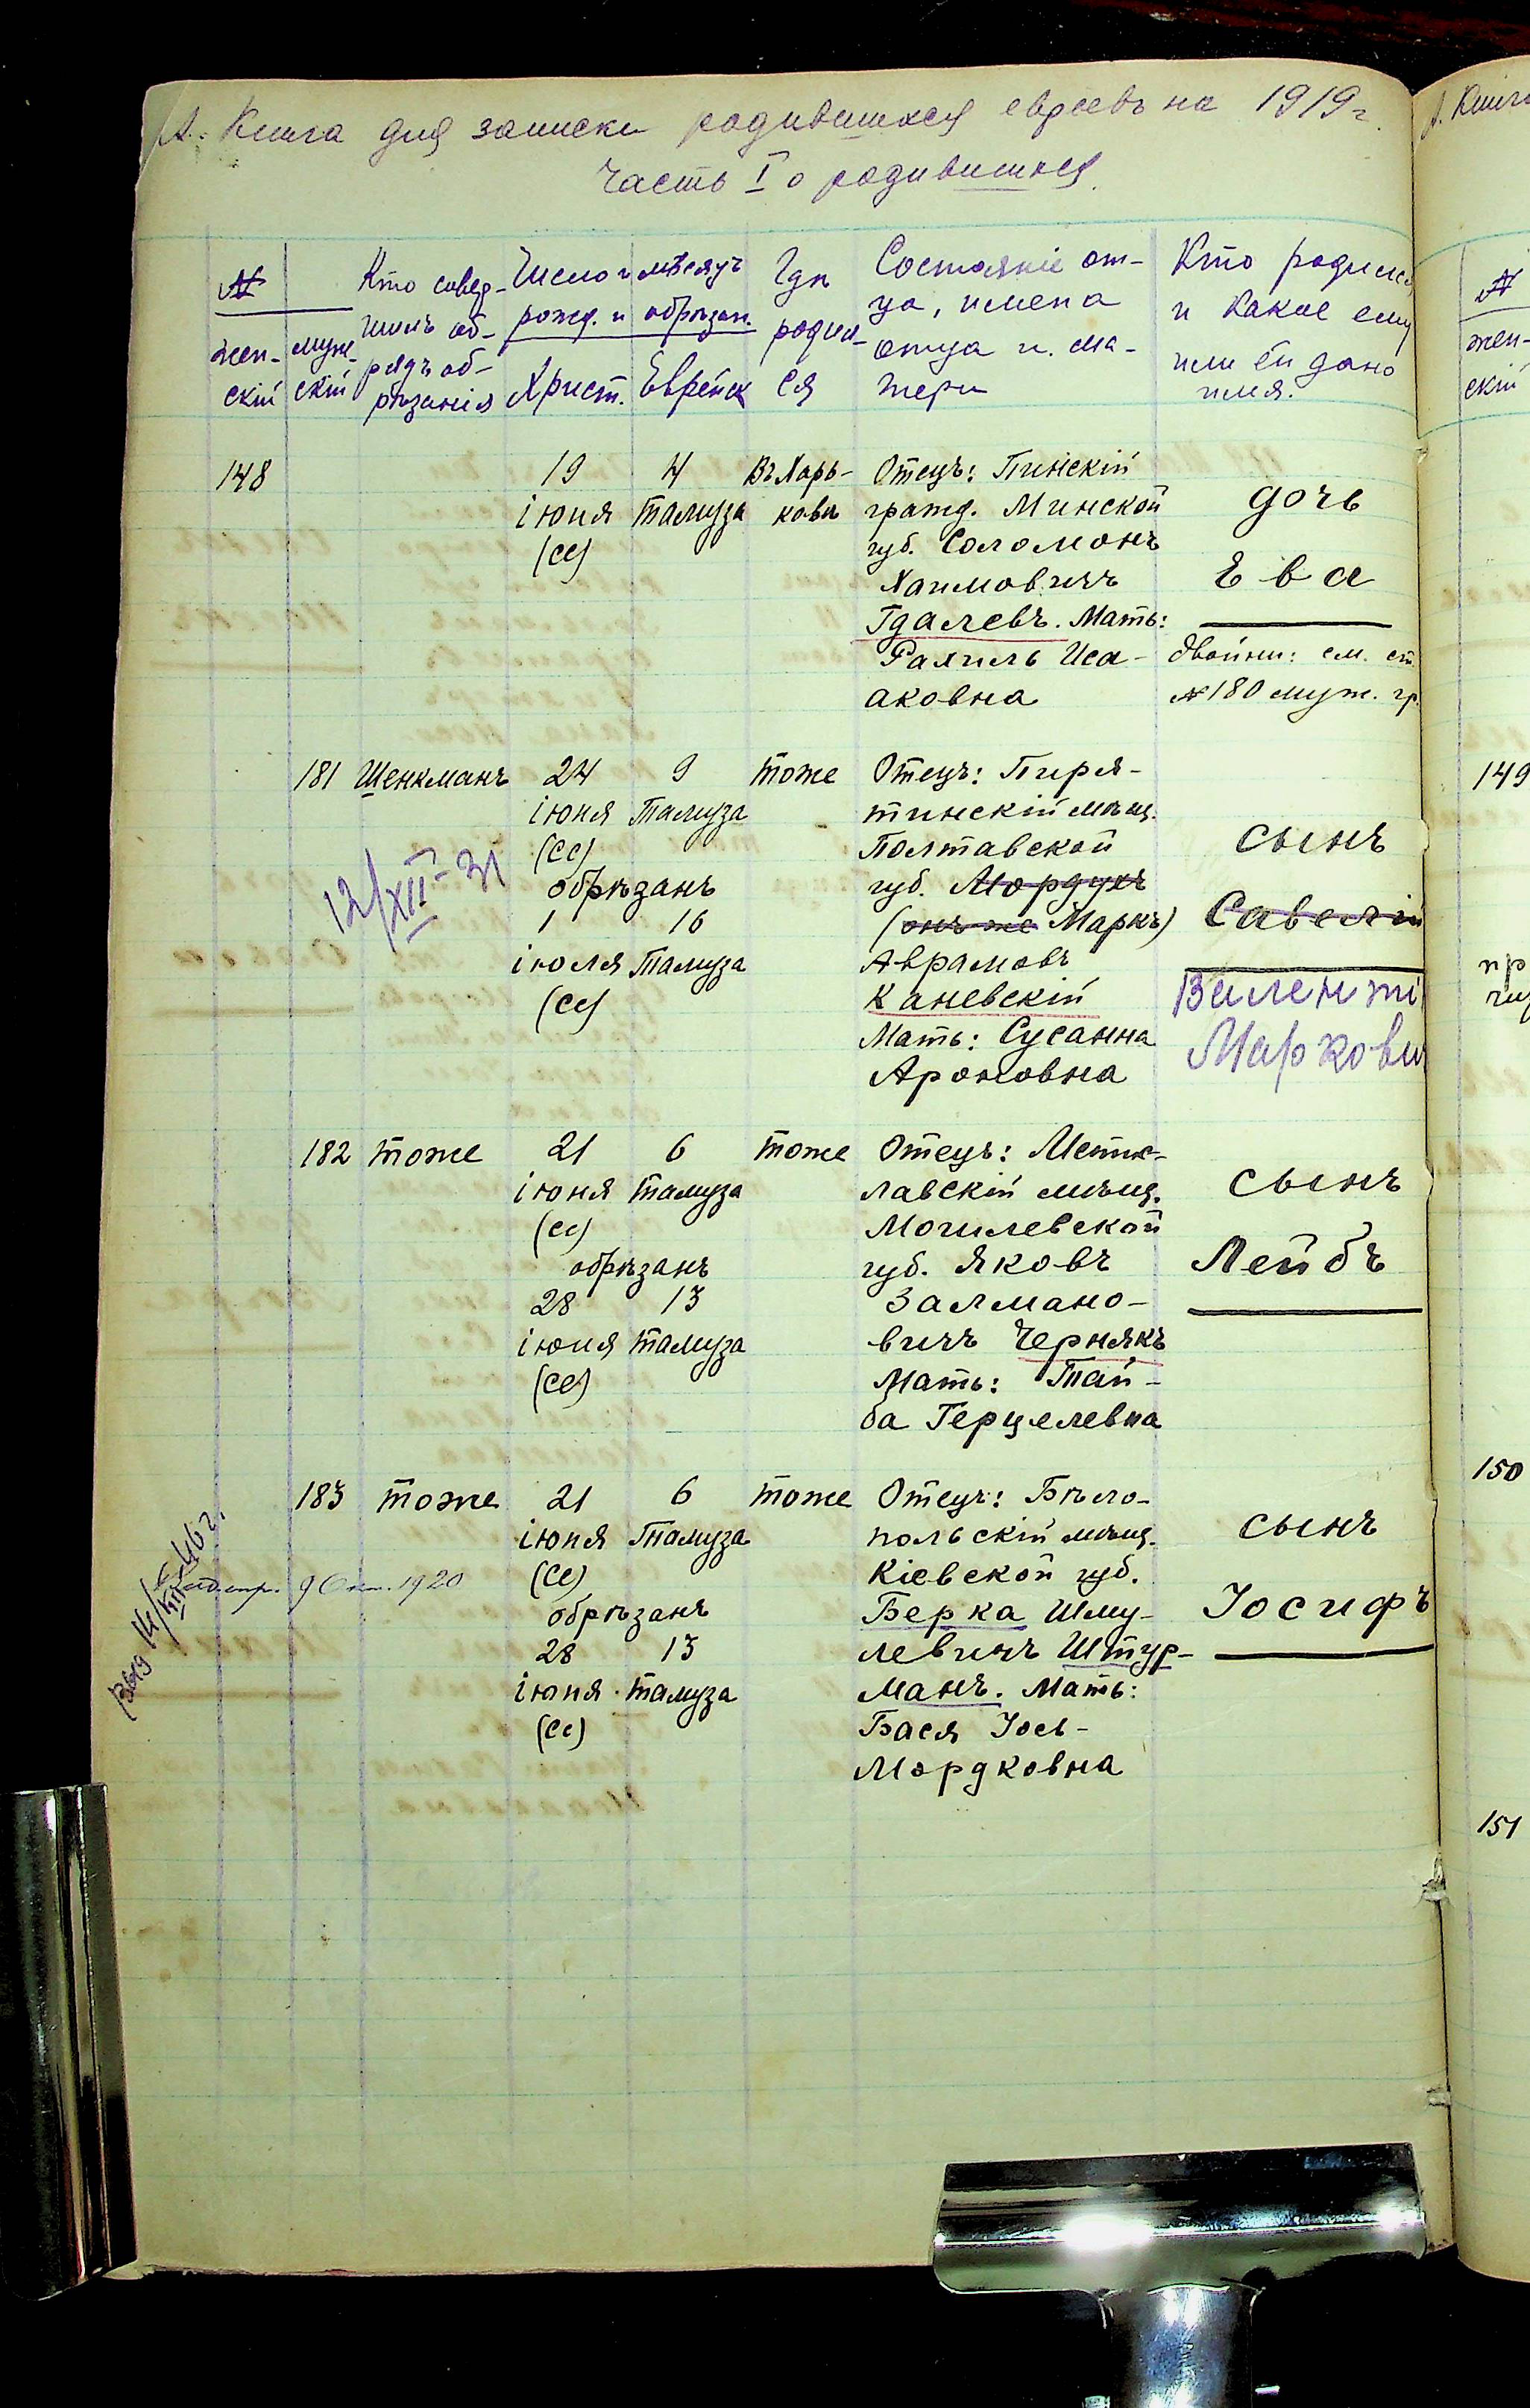 А. Книга для записки родившихся евреевъ на 1919 г.
Часть I о родившихся.
№
жен-
скій
муж-
скій
Кто совер-
шилъ об-
рядъ об-
рѣзанія
Число и мѣсяцъ
рожд. и обрѣзан.
Христ. Еврейск
Гдѣ
родил-
ся
Состояніе от-
ца, имена
отца и ма-
тери
Кто родился
и какое ему
или ей дано
имя.
148
19 4
іюня Тамуза
(сс)
Въ Харь-
ковѣ
Отецъ: Пинскій
гражд. Минской
губ. Соломонъ
Хаимовичъ
Гдалевъ. Мать:
Рахиль Иса-
аковна
дочь
Ева
двойни: см. ст.
№ 180 муж. гр.
181 Шенкманъ
12/XII-31
24 9
іюня Тамуза
(сс)
обрѣзанъ
1 16
іюля Тамуза
(сс)
тоже
Отецъ: Пиря-
тинскій мѣщ.
Полтавской
губ. Мордухъ
(онъ же Маркъ)
Аврамовъ
Каневскій
Мать: Сусанна
Ароновна
сынъ
Савелій
Валенти
Маркови
182 тоже
21 6
іюня Тамуза
(сс)
обрѣзанъ
28 13
іюня Тамуза
(сс)
тоже
Отецъ: Мстис-
лавскій мѣщ.
Могилевской
губ. Яковъ
Залмано-
вичъ Чернякъ
Мать: Тай-
ба Герцелевна
сынъ
Лейбъ
183 тоже
9 Окт. 1920
21 6
іюня Тамуза
(сс)
обрѣзанъ
28 13
іюня Тамуза
(сс)
тоже
Отецъ: Бѣло-
польскій мѣщ.
Кіевской губ.
Берка Шму-
левичъ Штур-
манъ. Мать:
Бася Іось-
Мордковна
сынъ
Іосифъ
А. Книга
№
жен-
скій
149
пр
150
151